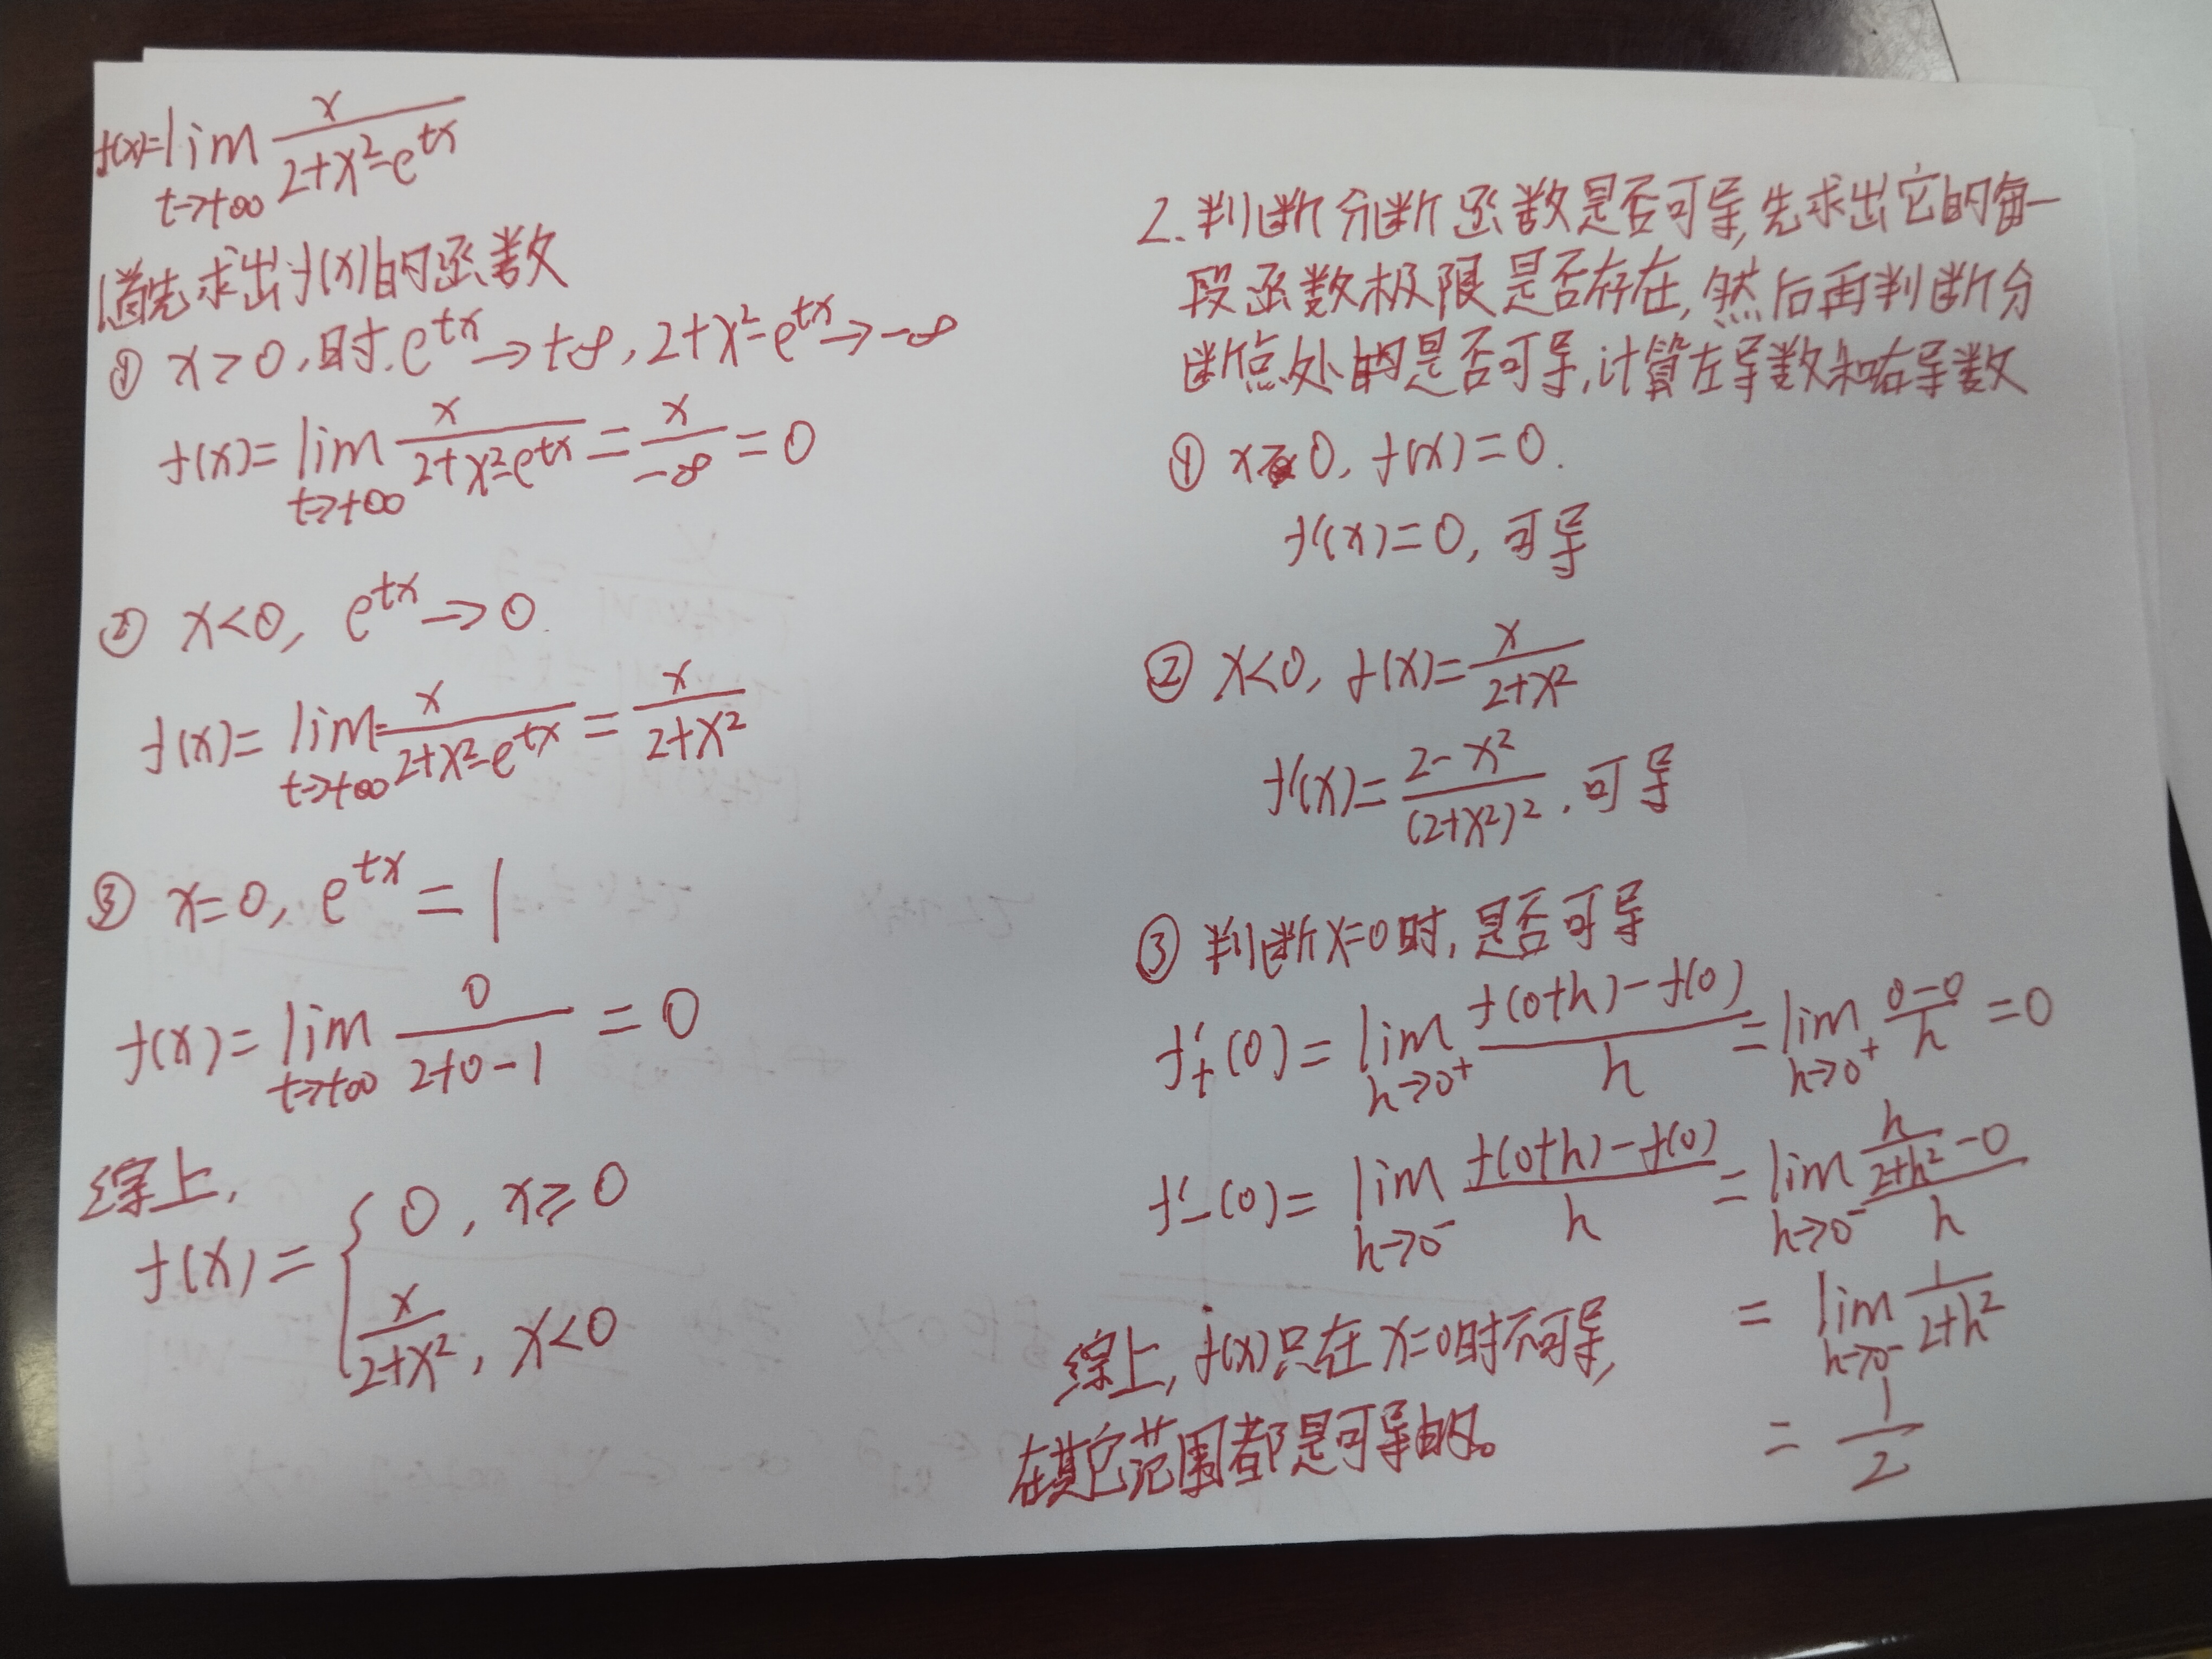 f(x)=lim_{t→+∞} x/(2+x²-e^{tx})
1.首先求出f(x)的函数
① x>0,时.e^{tx}→+∞,2+x²-e^{tx}→-∞
f(x)=lim_{t→+∞} x/(2+x²-e^{tx})=x/(-∞)=0
② x<0, e^{tx}→0.
f(x)=lim_{t→+∞} x/(2+x²-e^{tx})=x/(2+x²)
③ x=0, e^{tx}=1
f(x)=lim_{t→+∞} 0/(2+0-1)=0
综上,
f(x)={0, x≥0
x/(2+x²), x<0
2.判断分断函数是否可导,先求出它的每一
段函数极限是否存在,然后再判断分
断点处的是否可导,计算左导数和右导数
① x>0, f(x)=0.
f'(x)=0,可导
② x<0, f(x)=x/(2+x²)
f'(x)=(2-x²)/(2+x²)²,可导
③ 判断x=0时,是否可导
f'₊(0)=lim_{h→0⁺} (f(0+h)-f(0))/h=lim_{h→0⁺} (0-0)/h=0
f'₋(0)=lim_{h→0⁻} (f(0+h)-f(0))/h=lim_{h→0⁻} (h/(2+h²)-0)/h
=lim_{h→0⁻} 1/(2+h²)
=1/2
综上,f(x)只在x=0时不可导,
在其它范围都是可导的。